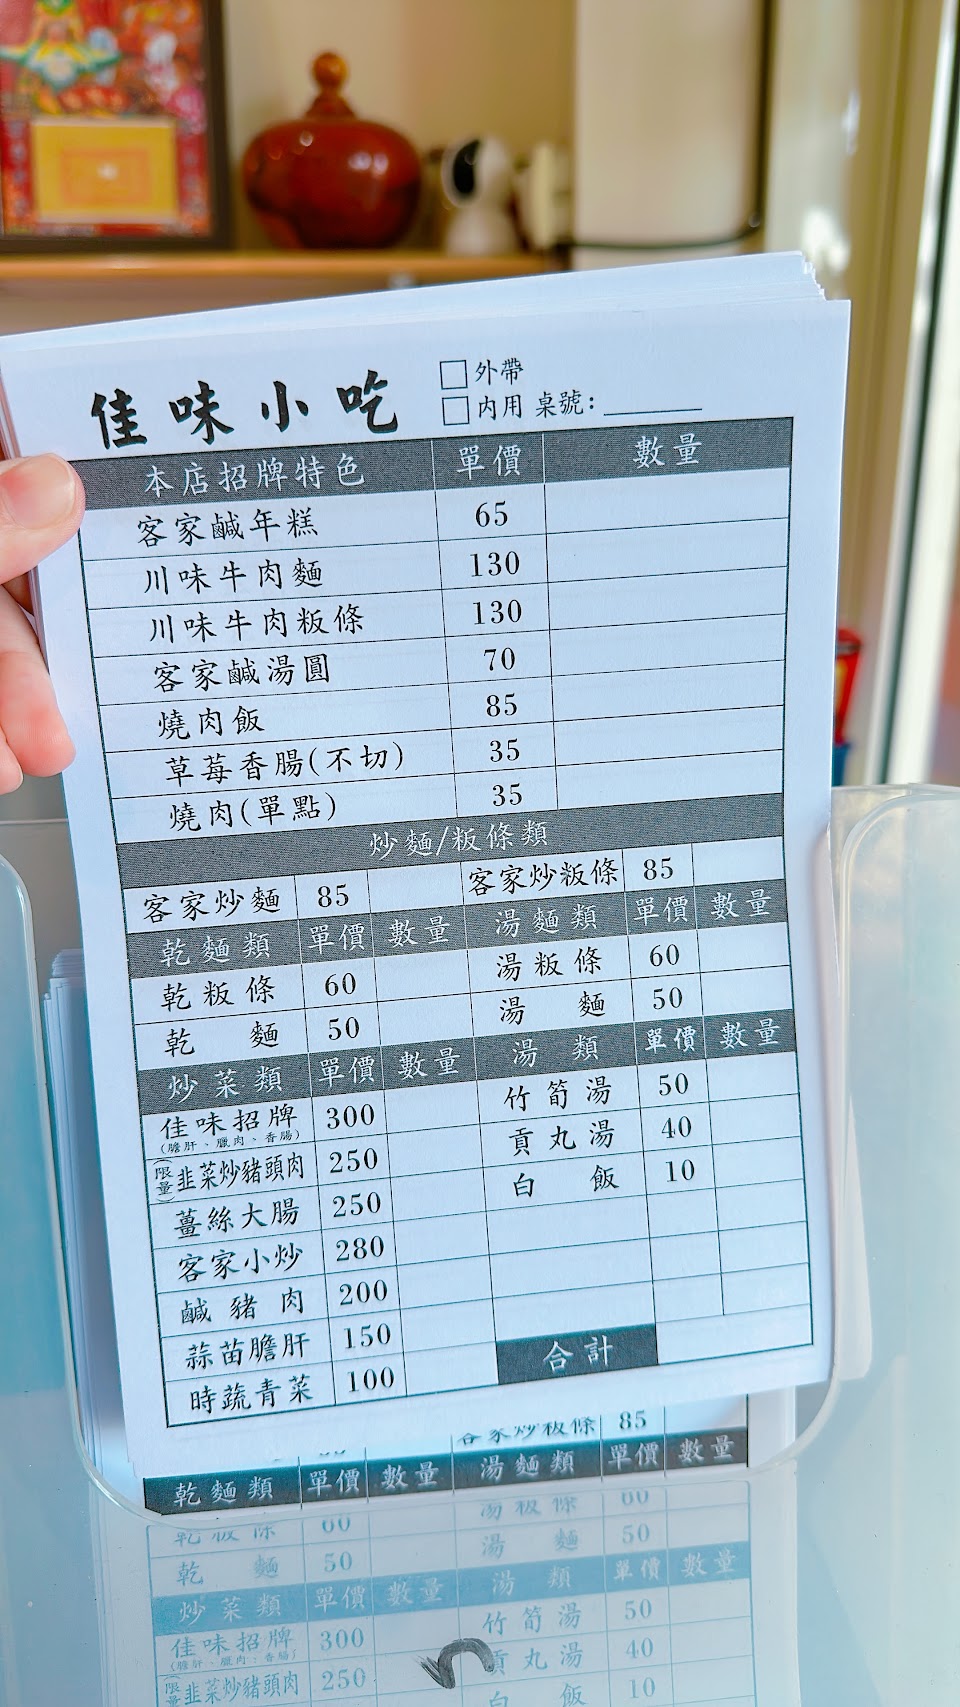 佳味小吃
□外帶
□內用 桌號：
本店招牌特色 單價 數量
客家鹹年糕 65
川味牛肉麵 130
川味牛肉粄條 130
客家鹹湯圓 70
燒肉飯 85
草莓香腸(不切) 35
燒肉(單點) 35
炒麵/粄條類
客家炒麵 85 客家炒粄條 85
乾麵類 單價 數量 湯麵類 單價 數量
乾粄條 60 湯粄條 60
乾麵 50 湯麵 50
炒菜類 單價 數量 湯類 單價 數量
佳味招牌 300 竹筍湯 50
(膽肝、臘肉、香腸)
(限量)韭菜炒豬頭肉 250 貢丸湯 40
薑絲大腸 250 白飯 10
客家小炒 280
鹹豬肉 200
蒜苗膽肝 150 合計
時蔬青菜 100
客家炒粄條 85
乾麵類 單價 數量 湯麵類 單價 數量
乾粄條 60 湯粄條 60
乾麵 50 湯麵 50
炒菜類 單價 數量 湯類 單價 數量
佳味招牌 300 竹筍湯 50
(膽肝、臘肉、香腸)
限量 韭菜炒豬頭肉 250 貢丸湯 40
白飯 10